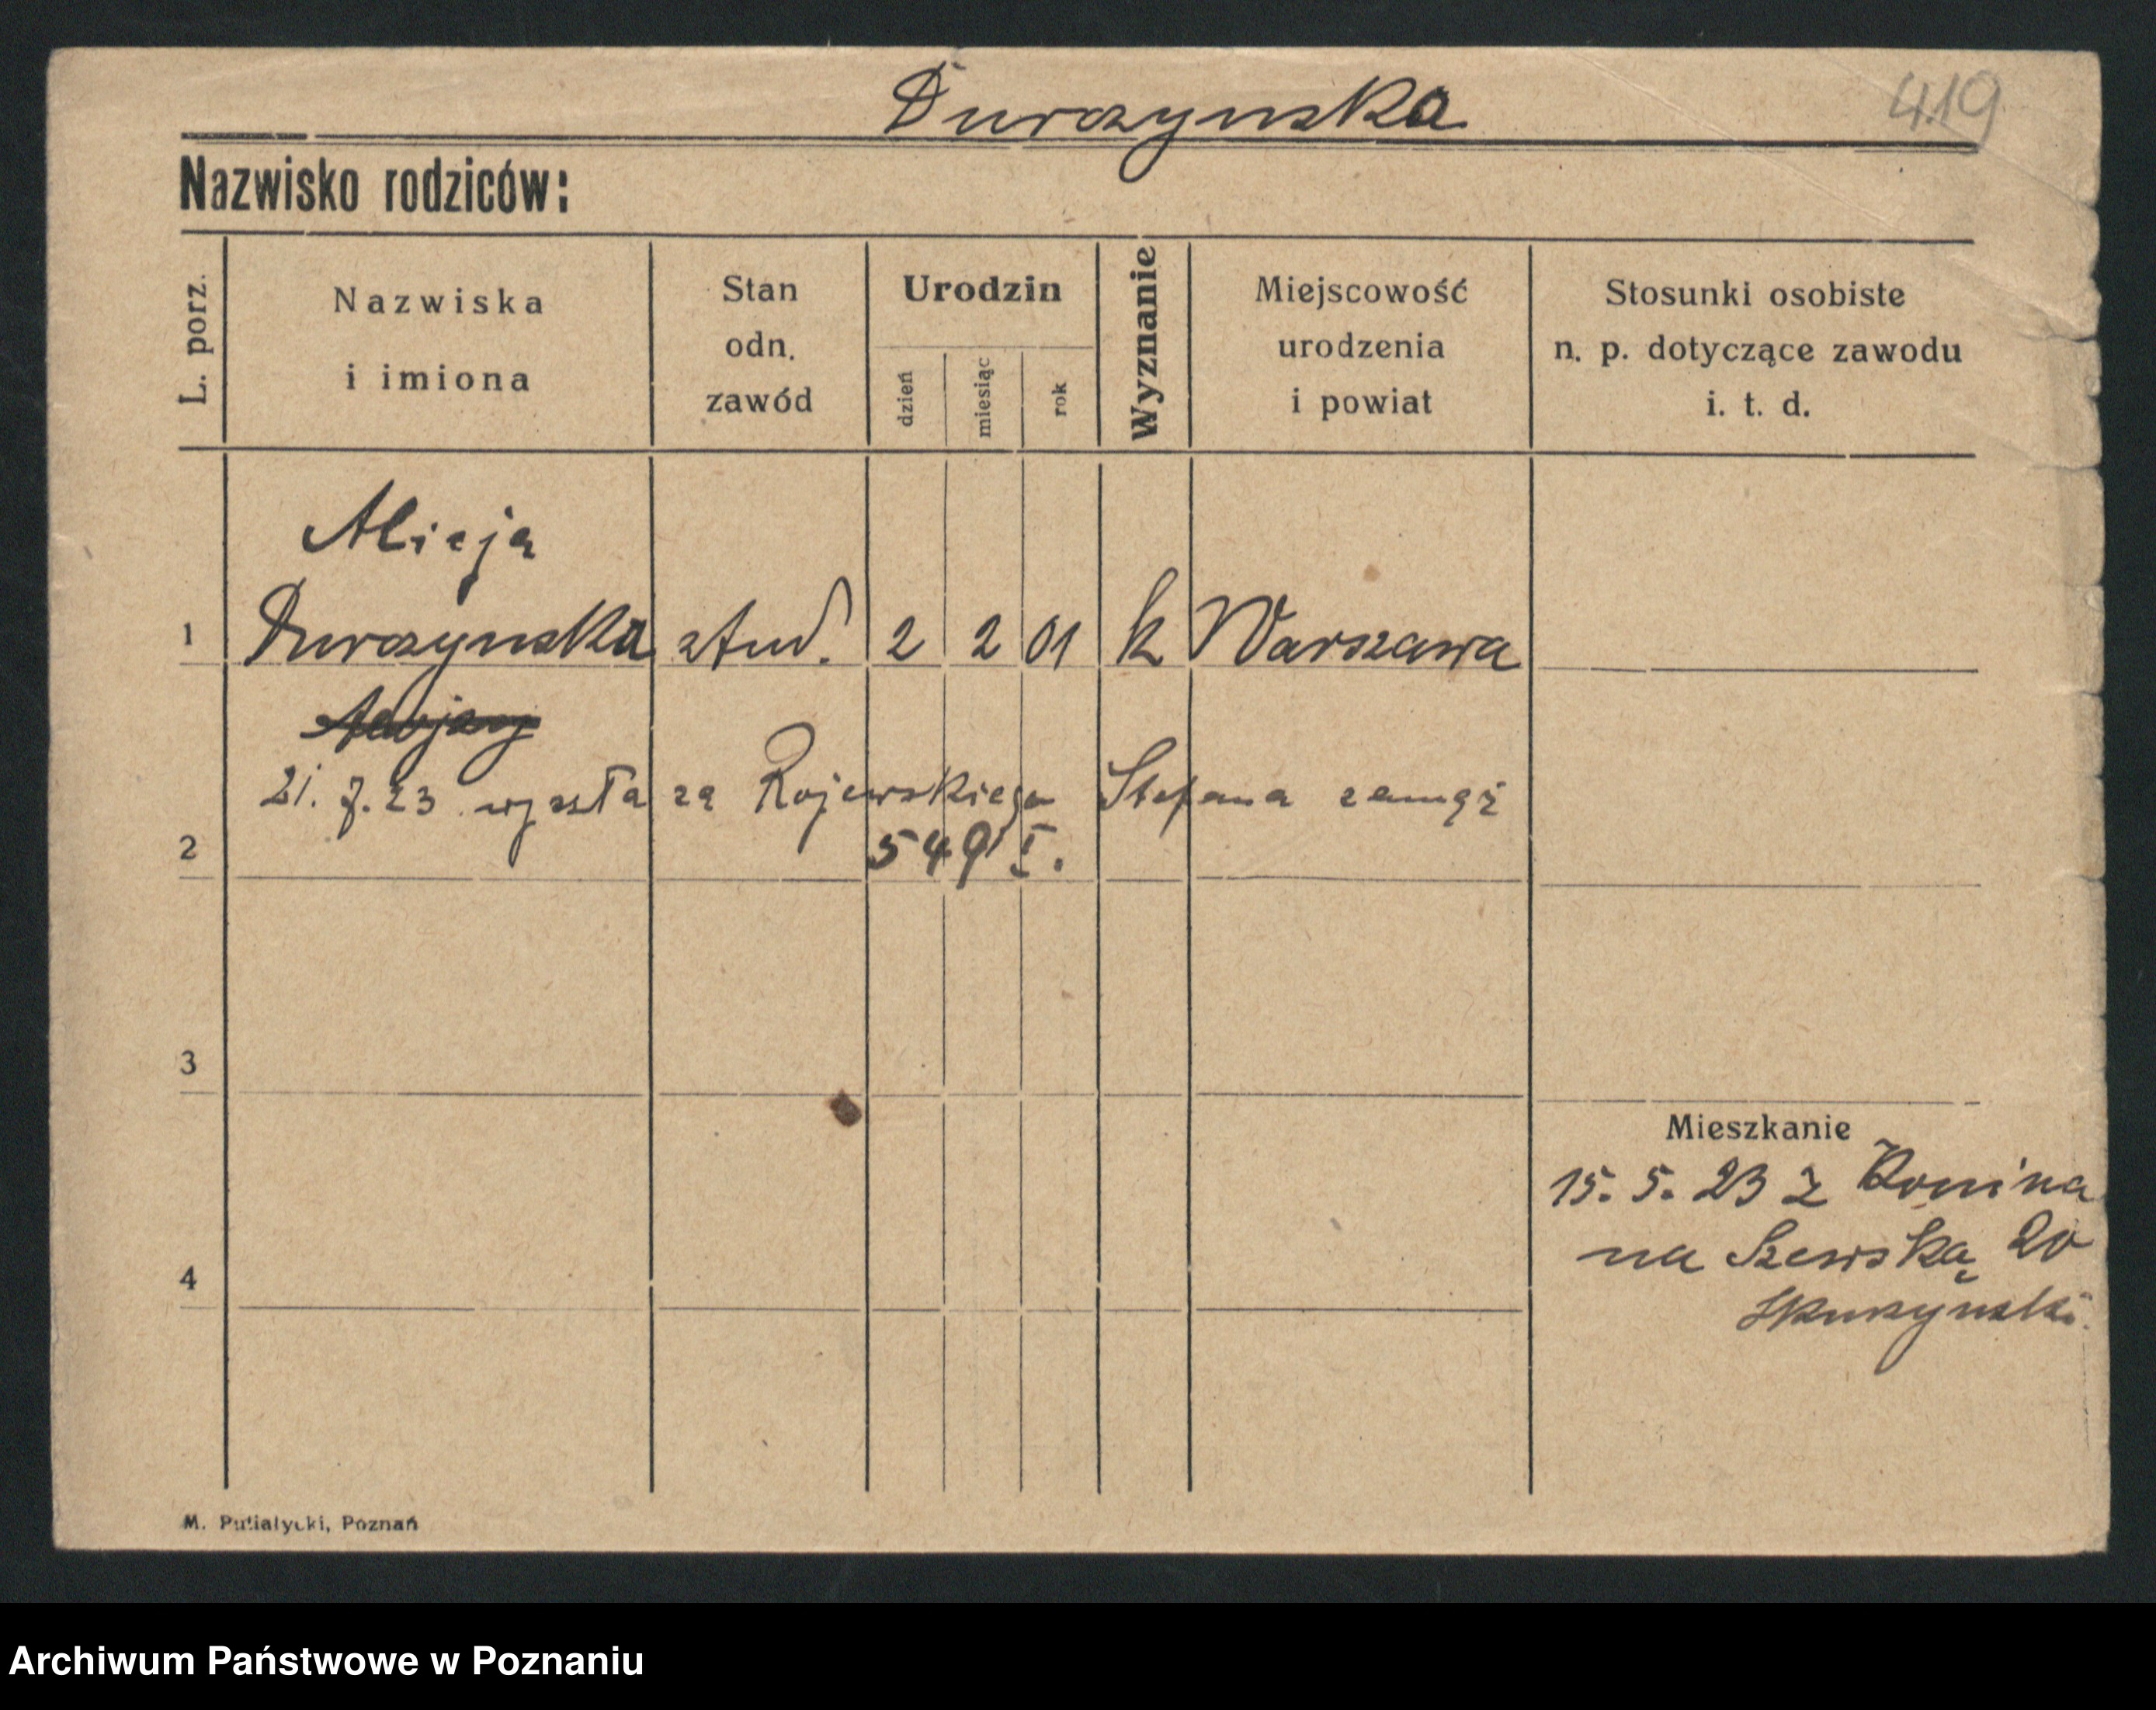 Durczynska
419
Nazwisko rodziców:
L. porz.
Nazwiska
i imiona
Stan
odn.
zawód
Urodzin
dzień
miesiąc
rok
Wyznanie
Miejscowość
urodzenia
i powiat
Stosunki osobiste
n. p. dotyczące zawodu
i. t. d.
Alicja
1 Durczynska stud. 2 2 01 k Warszawa
21. 7. 23 wyszła za Rojewskiego Stefana zamąż
2 549 I.
3
Mieszkanie
15. 5. 23 z Konina
na Szewską 20
4
M. Putiatycki, Poznań
Archiwum Państwowe w Poznaniu